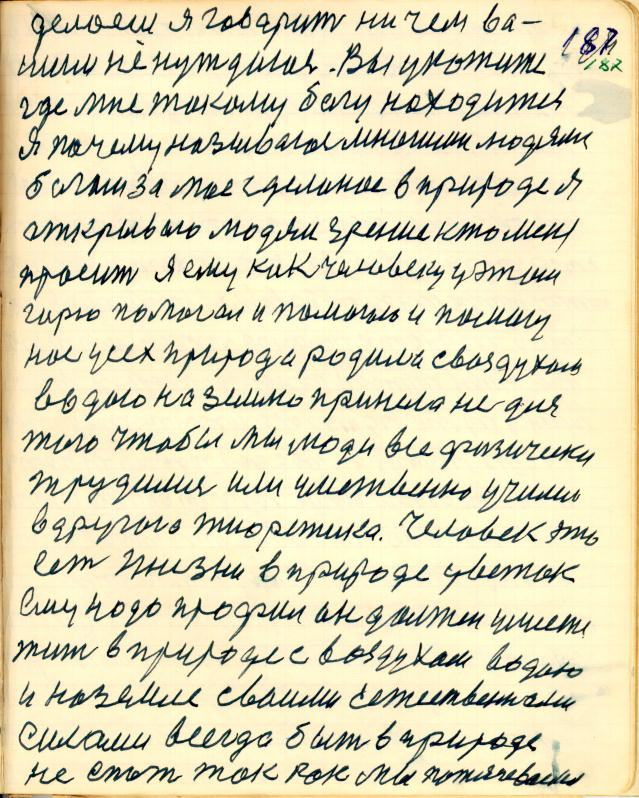 187
182
делаем я говарит ни чем ва-
шим не нуждаюся. Вы укожите
где мне такому богу находится
Я почему называюсь многими людями
богам за мое зделоное в природе я
открываю людям зрение кто меня
просит я ему как человеку у этом
горю помогал и помогаю и помогу
нас усех природа родила с воздухом
водою на землю приняла не для
того чтобы мы люди все физически
трудилися или умственно училися
в другого тиоретика. Человек это
ест жизни в природе цветок
Ему надо профил он должен уместе
жит в природе с воздухом водою
и на земле своими естественными
силами всегда быт в природе
не спат так как мы